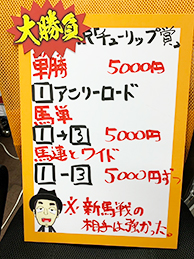 大勝負
沢『チューリップ賞』
単勝 5000円
1 アンリーロード
馬単
1→3 5000円
馬連とワイド
1-3 5000円ずつ
※新馬戦の
相手は強かった。